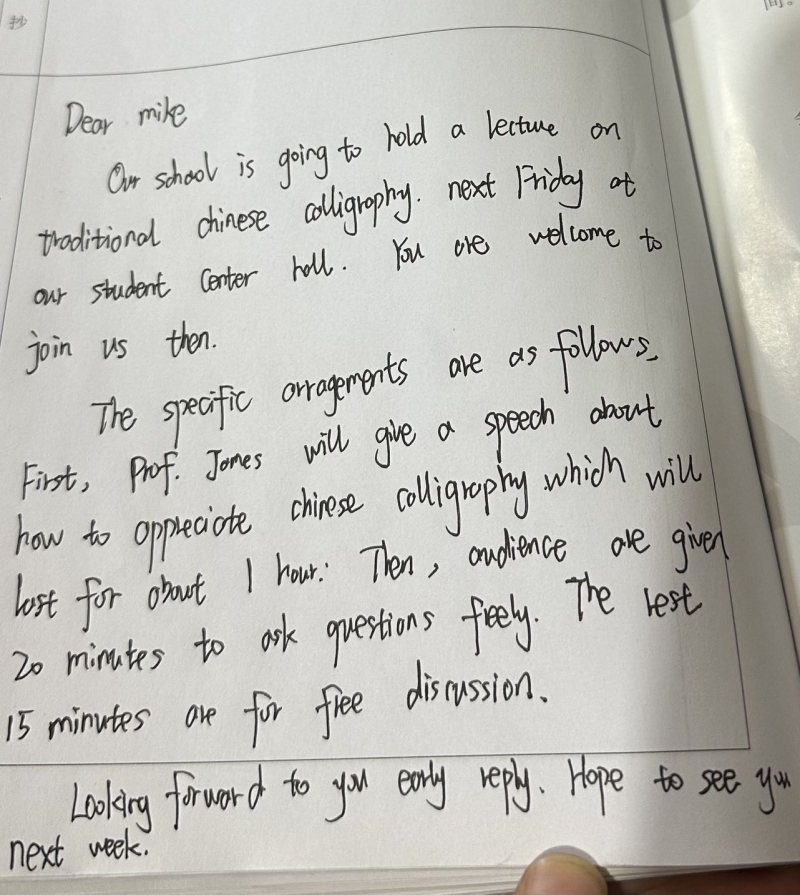 抄
Dear mike
Our school is going to hold a lecture on
traditional chinese calligraphy. next Friday at
our student Center hall. You are welcome to
join us then.
The specific arragements are as follows.
First, Prof. James will give a speech about
how to appreciate chinese calligraphy which will
last for about 1 hour. Then, audience are given
20 minutes to ask questions freely. The rest
15 minutes are for free discussion.
Looking forward to you early reply. Hope to see you
next week.